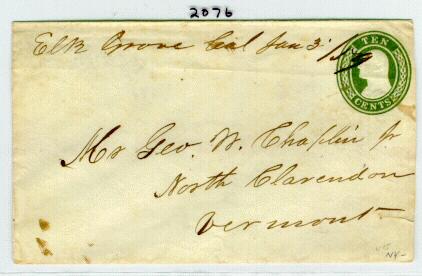 2076
Elk Grove Cal Jan 3
TEN
CENTS
Mr Geo. W. Chaplin Jr
North Clarendon
Vermont
NY-